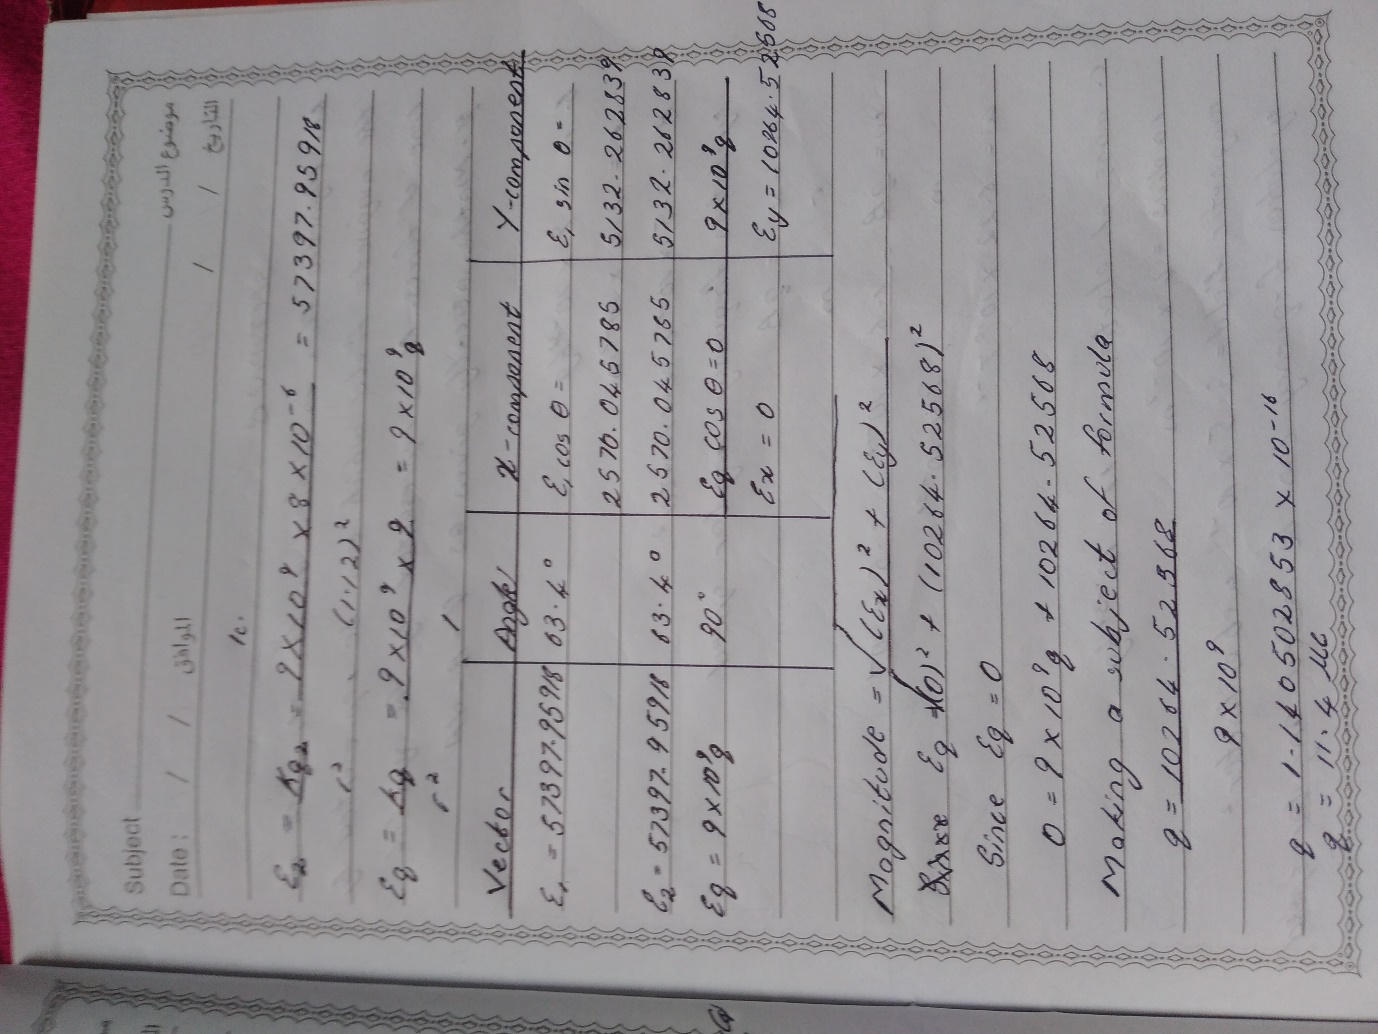 Subject موضوع الدرس
Date : / / الموافق / / التاريخ
1c.
E₂ = Kq₂ = 9×10⁹ × 8 × 10⁻⁶ = 57397.95918
r² (1.12)²
Eq = Kq = 9×10⁹ × q = 9×10⁹q
r² 1
Vector Angle X-component Y-component
E₁ = 57397.95918 63.4° E₁ cos θ = E₁ sin θ =
2570.045785 5132.262839
E₂ = 57397.95918 63.4° 2570.045765 5132.262839
Eq = 9×10⁹q 90° Eq cos θ = 0 9×10⁹q
Ex = 0 Ey = 10264.52568
Magnitude = √(Ex)² + (Ey)²
Eq = √(0)² + (10264.52568)²
Since Eq = 0
0 = 9×10⁹q + 10264.52568
Making a subject of formula
q = 10264.52568
9×10⁹
q = 1.140502853 × 10⁻¹⁶
q = 11.4 µc